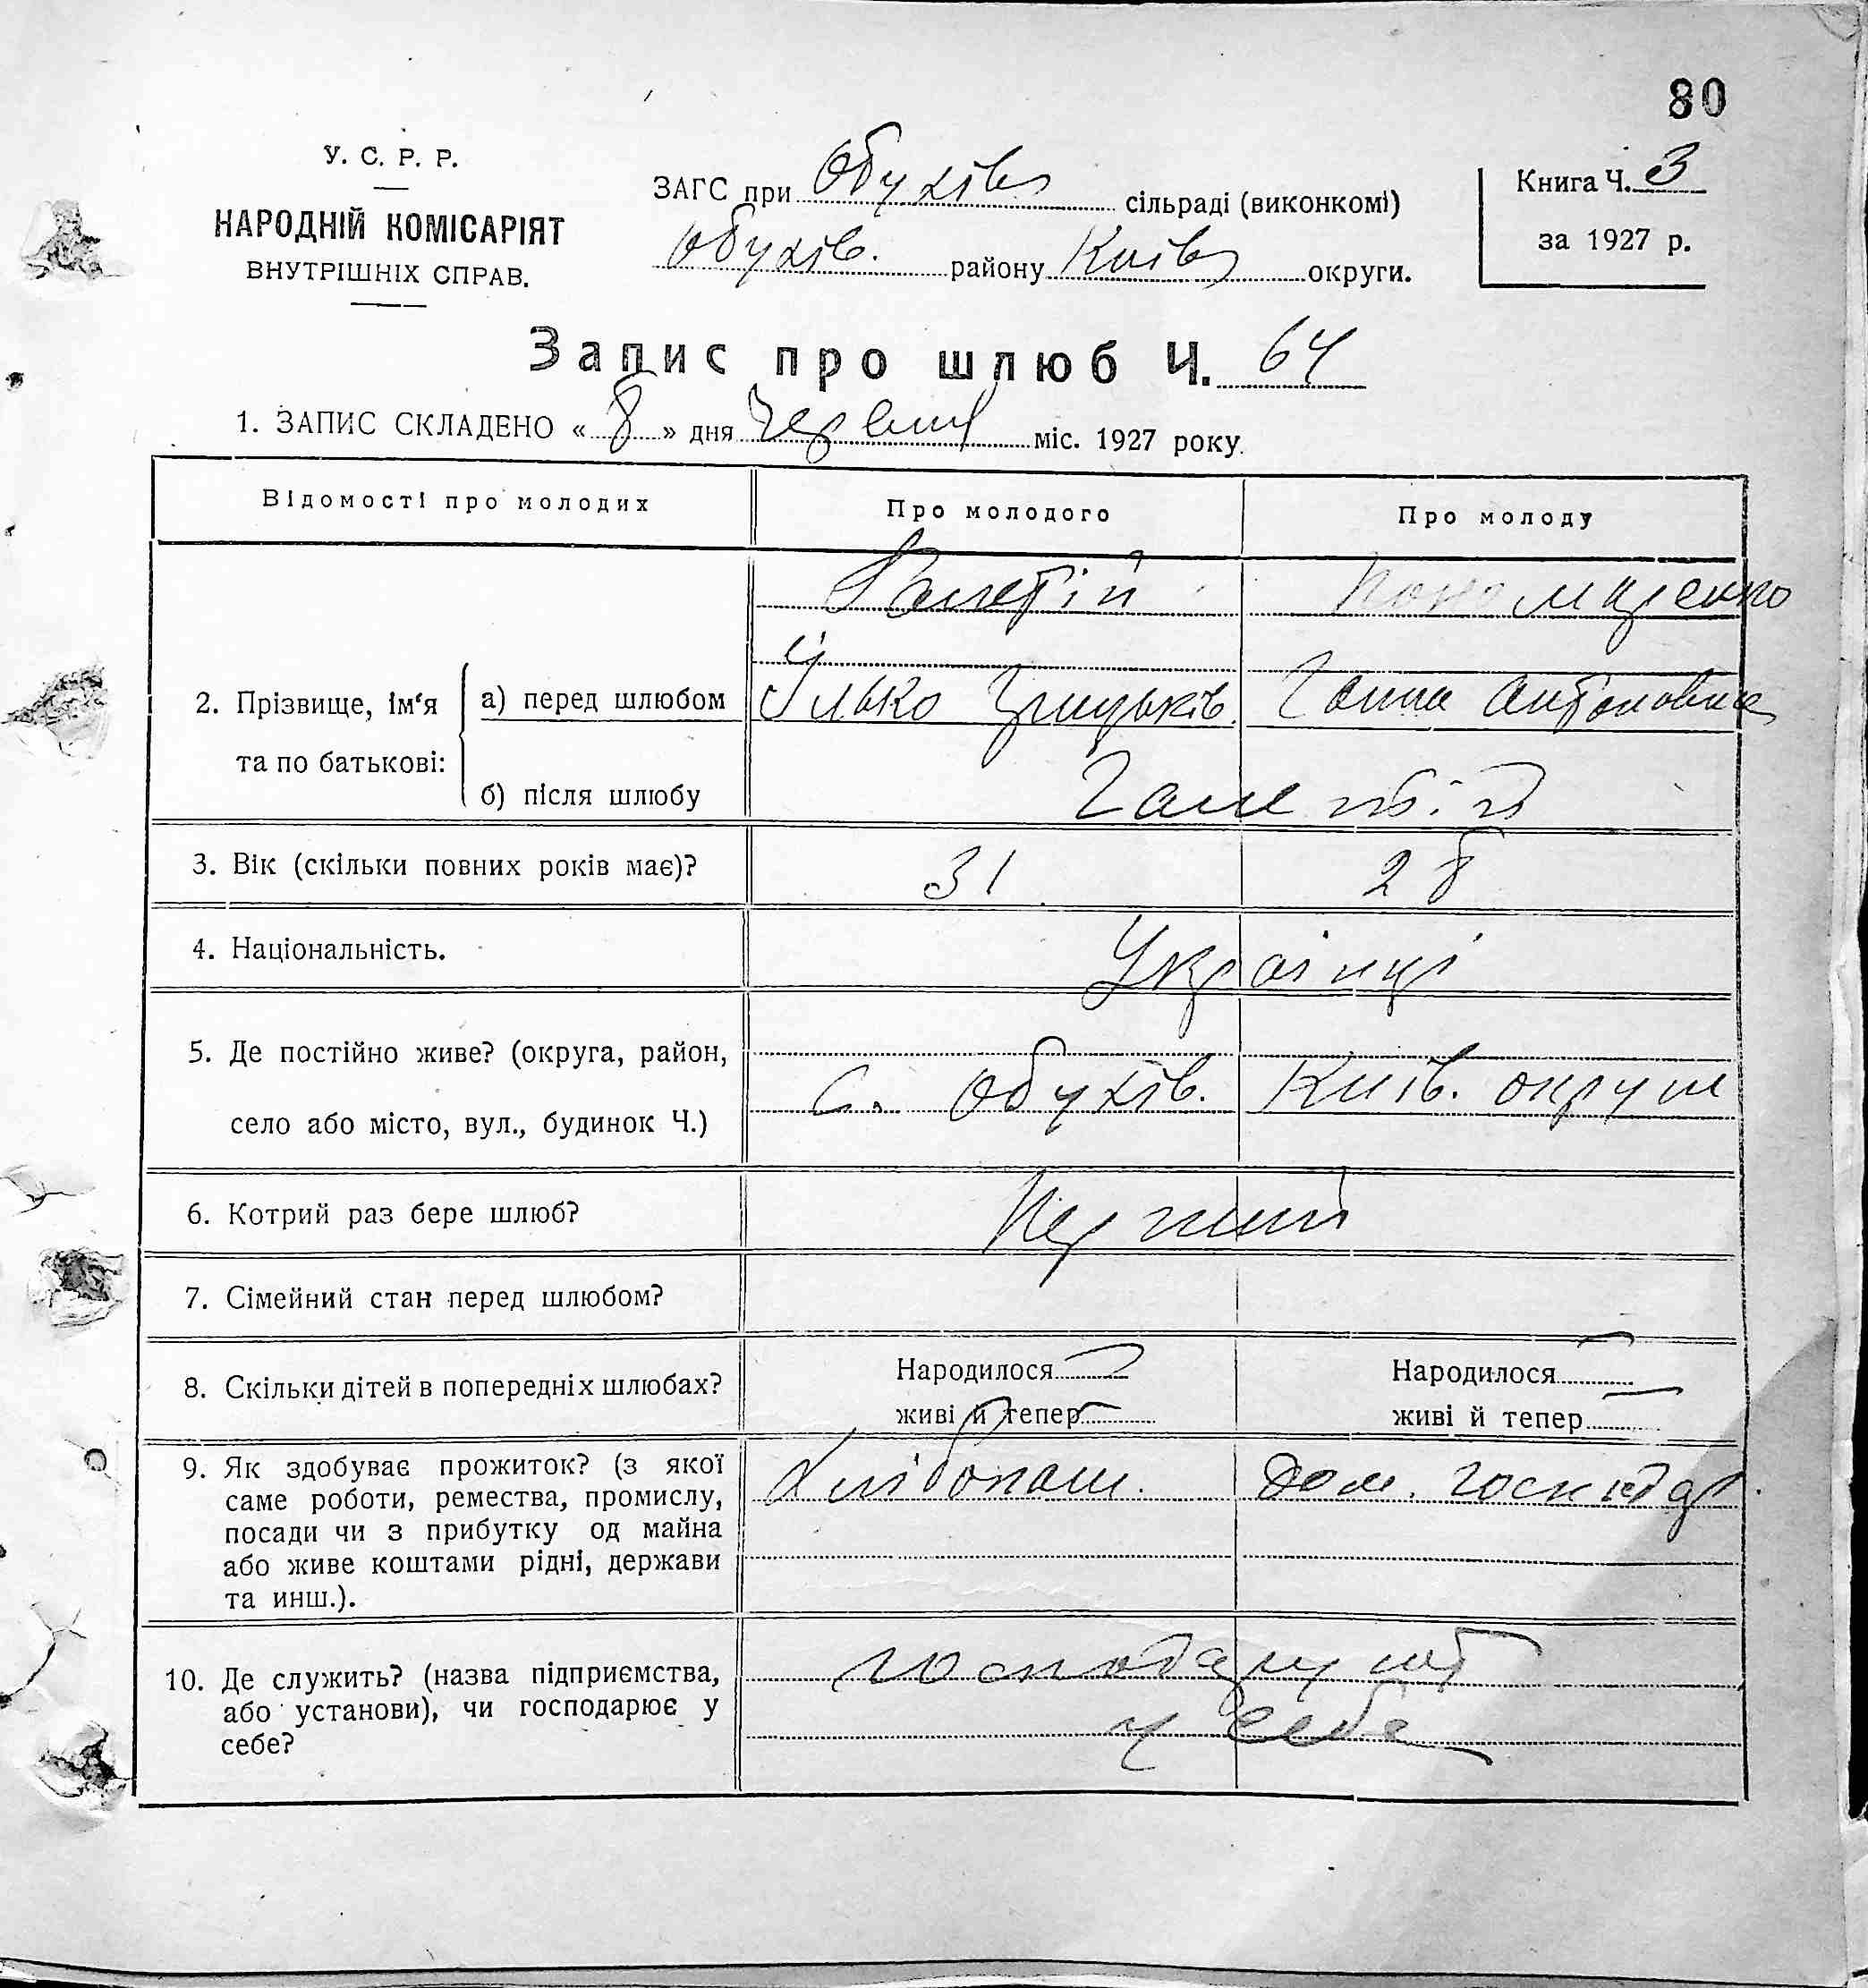 80
У. С. Р. Р.
НАРОДНІЙ КОМІСАРІЯТ
ВНУТРІШНІХ СПРАВ.
ЗАГС при Обухівс сільраді (виконкомі)
Обухів. району Київс округи.
Книга Ч. 3
за 1927 р.
Запис про шлюб Ч. 64
1. ЗАПИС СКЛАДЕНО « 8 » дня Червня міс. 1927 року.
Відомості про молодих Про молодого Про молоду
Пономаренко
2. Прізвище, ім‘я та по батькові: а) перед шлюбом Ілько Грицьків. Ганна Антоновна
б) після шлюбу
3. Вік (скільки повних років має)? 31 28
4. Національність. Українці
5. Де постійно живе? (округа, район,
село або місто, вул., будинок Ч.) с. Обухів. Київ. округи
6. Котрий раз бере шлюб? Перший
7. Сімейний стан перед шлюбом?
8. Скільки дітей в попередніх шлюбах? Народилося — Народилося —
живі й тепер — живі й тепер —
9. Як здобуває прожиток? (з якої Хлібопаш. Дом. господар.
саме роботи, ремества, промислу,
посади чи з прибутку од майна
або живе коштами рідні, держави
та инш.).
10. Де служить? (назва підприємства, господарують
або установи), чи господарює у у себе
себе?